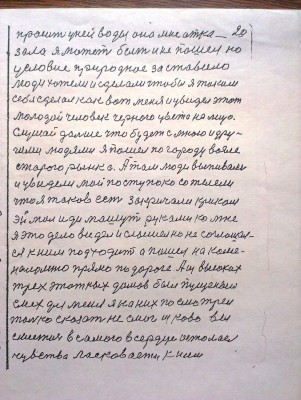 просит у ней воды она мне отка- 20
зала я может быть и не пошел но
условие природное заставило
люди хотели и сделали чтобы я таким
себя сделал как вот меня и увидел этот
молодой человек черного цвета на лицо.
Слушай дальше что будет с мною и дру-
гими людями я пошел по городу возле
старого рынка. А там люди выпивали
и увидели мой поступок осмеяли
что я таков есть закричали криком
эй мол иди машут руками ко мне
я это дело видел и слышел но не соглошал-
ся к ним подходит а пошел на
прямо по дороге А из высоких
трех этотных домов был пущенный
смех для меня я на них посмотрел
только сказать не смог ни
в самого в сердце
чувства ласковаети к ним